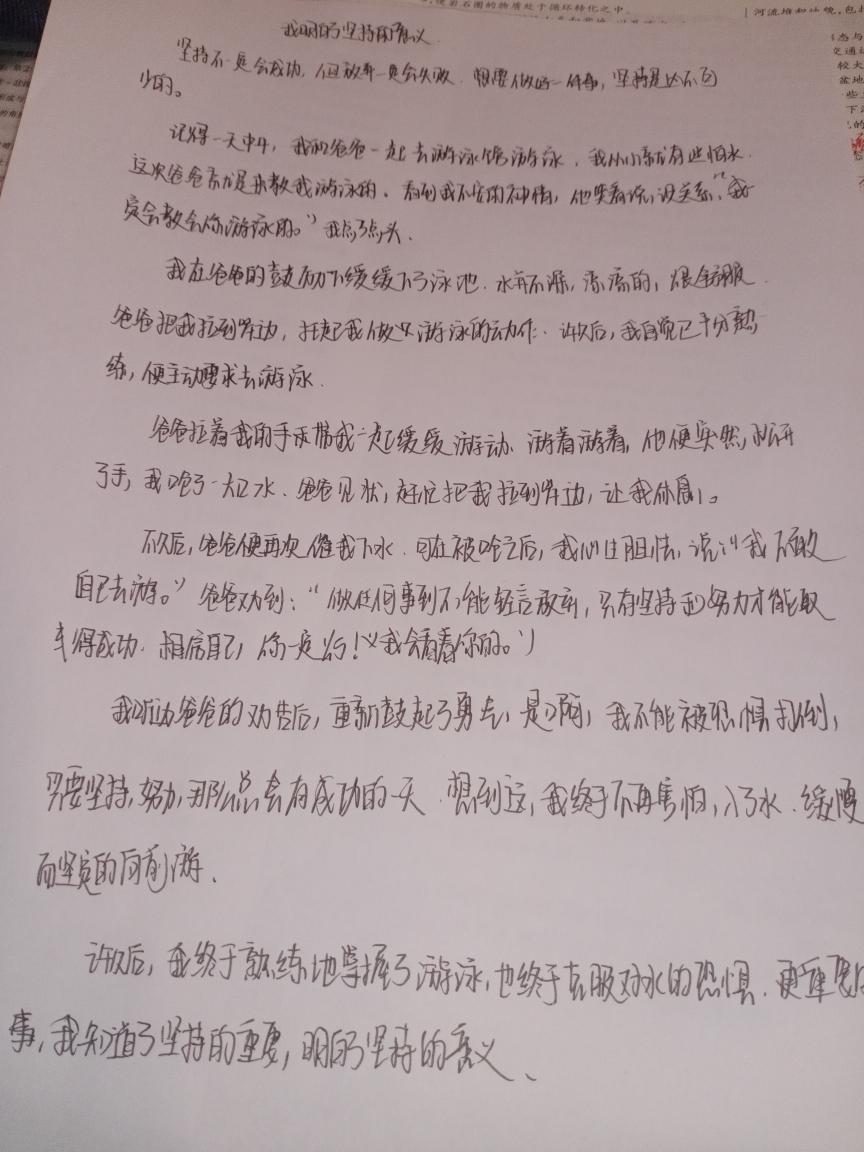 使岩石圈的物质处于循环转化之中。
河流堆和
态与
交通
较大
盆地
一些
下
的
我明白了坚持的意义
坚持不一定会成功，但放弃一定会失败。想要做好一件事，坚持是必不可
少的。
记得一天中午，我和爸爸一起去游泳馆游泳，我从小就有些怕水，
这次爸爸就是来教我游泳的。看到我不安的神情，他笑着说：没关系，“我一
定会教会你游泳的。”我点了点头。
我在爸爸的鼓励下缓缓下了泳池。水并不深，凉凉的，很舒服。
爸爸把我拉到岸边，托起我做出游泳的动作。许久后，我自觉已十分熟
练，便主动要求去游泳。
爸爸拉着我的手来带我一起缓缓游动。游着游着，他便突然，松开
了手，我呛了一大口水。爸爸见状，赶忙把我拉到岸边，让我休息。
不久后，爸爸便再次催我下水。可在被呛之后，我心生胆怯，说“我不敢
自己去游。”爸爸劝到：“做任何事到不能轻言放弃，只有坚持和努力才能取
得成功。相信自己，你一定行！我会看着你的。”
我听爸爸的劝告后，重新鼓起了勇气，是啊，我不能被恐惧打倒，
只要坚持，努力，那么总会有成功的一天。想到这，我终于不再害怕，入了水。缓慢
而坚定的向前游。
许久后，我终于熟练地掌握了游泳，也终于克服对水的恐惧。更重要的
事，我知道了坚持的重要，明白了坚持的意义。